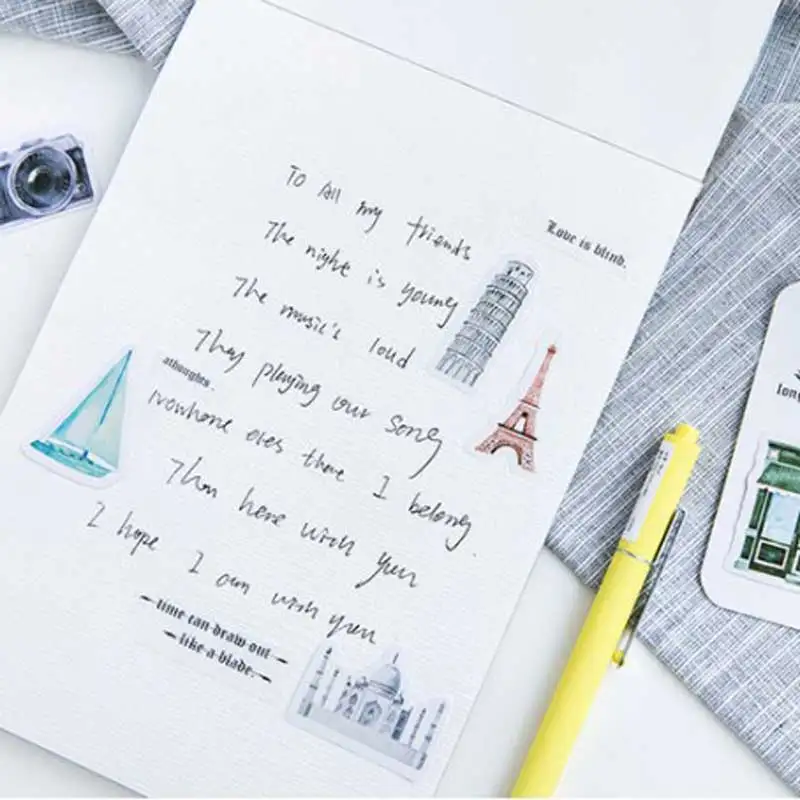 To All my friends
Love is blind.
The night is young
The music's loud
They playing our song
athoughts.
Nowhone oves there I belong.
Than here with you
I hope I own with you
time can draw out
like a blade.
long